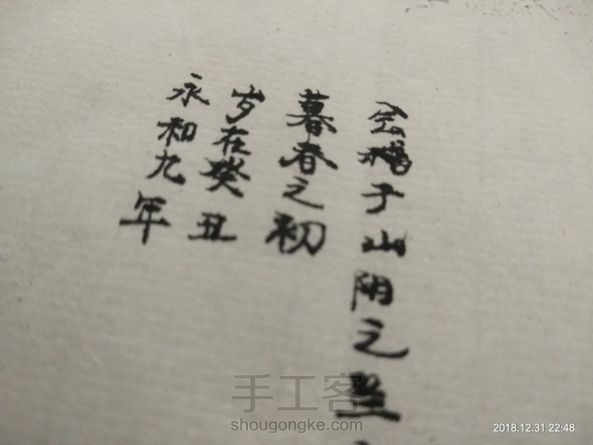 永和九年
岁在癸丑
暮春之初
会稽于山阴之
手工客
shougongke.com
2018.12.31 22:48